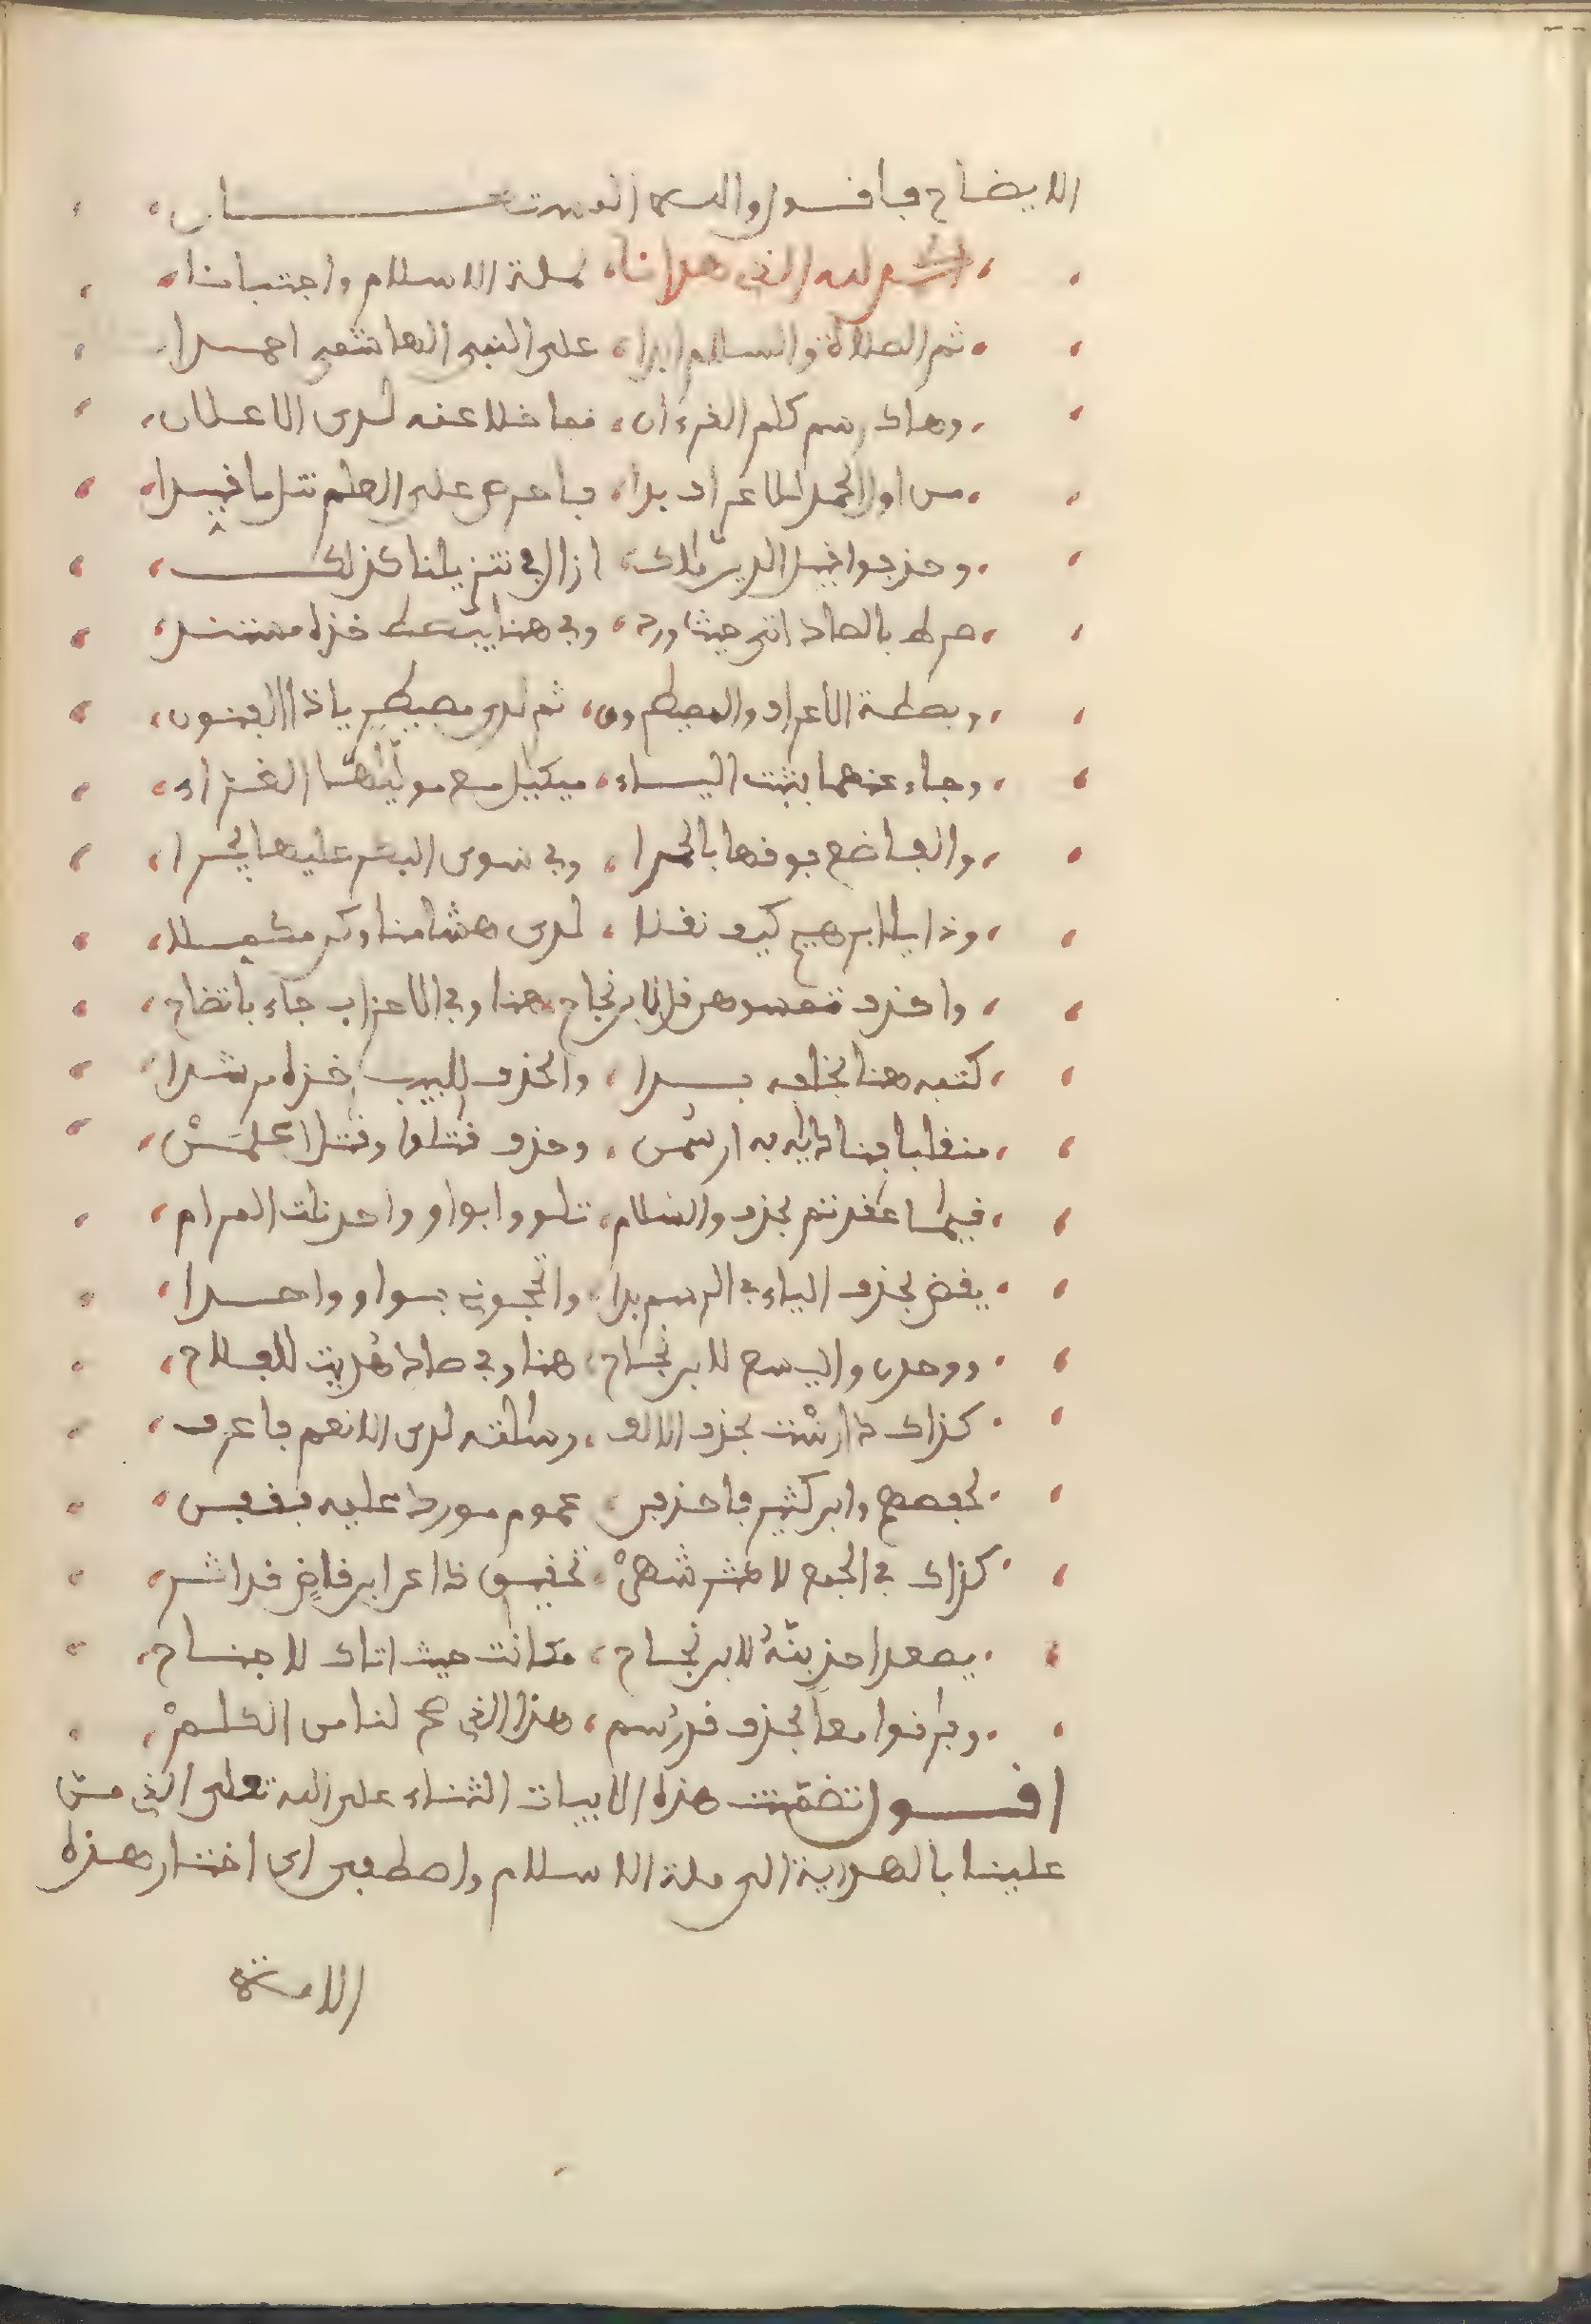 الايضاح فاقول والله المستعان
الحمد لله الذي هدانا لملة الاسلام واجتبانا
ثم الصلاة والسلام ابدا على النبي الهاشمي احمدا
وهاك رسم كلم القرءان فما خلا عنه لدى الاعلان
من اول الحمد للاعراف بدا فاحرص على العلم تنل ما قيدا
وحذفوا قبل الدين مالك اذ الف تنزيلنا كذلك
صرط بالصاد اتى حيث ورد وفي هنا يبسط خذه مستند
وبصطة الاعراف والمصيطرون ثم لدى بمصيطر يا ذا الفنون
وجاء عنهما بثبت الياء ميكىل مع موليها القراء
والف ضع فوقها بالحمرا وفي سوى البكر عليها يجرا
وذا يا ابرهيم كيف نقلا لدى هشامنا وكن مكملا
واحذف تمسوهن قل لابن نجاح هنا وفي الاحزاب جاء باتضاح
كتبه هنا بخلفه بدا والحذف للبيب خذه مرشدا
منقلبا فناديه به ارسمن وحذف قتلوا وقتل اعلمن
فيما عقدتم بحذف والسلام تلووا بواو واحد نلت المرام
يقض بحذف الياء في الرسم بدا واتحجوني بواو واحدا
ووحدن واليسع لابن نجاح هنا وفي صاد هديت للفلاح
كذاك دارست بحذف الالف رسلته لدى الانعم فاعرف
لحفصهم وابن كثير فاحذفن عموم مورد عليه فقيس
كذاك في الجمع لا عشر شهر تحقيق ذا عن ابن قاض قد اشتهر
يصعد احذفنه لابن نجاح مكانت حيث اتاك لا جناح
وفرقوا معا بحذف قد رسم هذا الذي صح لنا من الكلم
اقول تضمنت هذه الابيات الثناء على الله تعلى الذي من
علينا بالهداية الى ملة الاسلام واصطفى اى اختار هذه
الامة